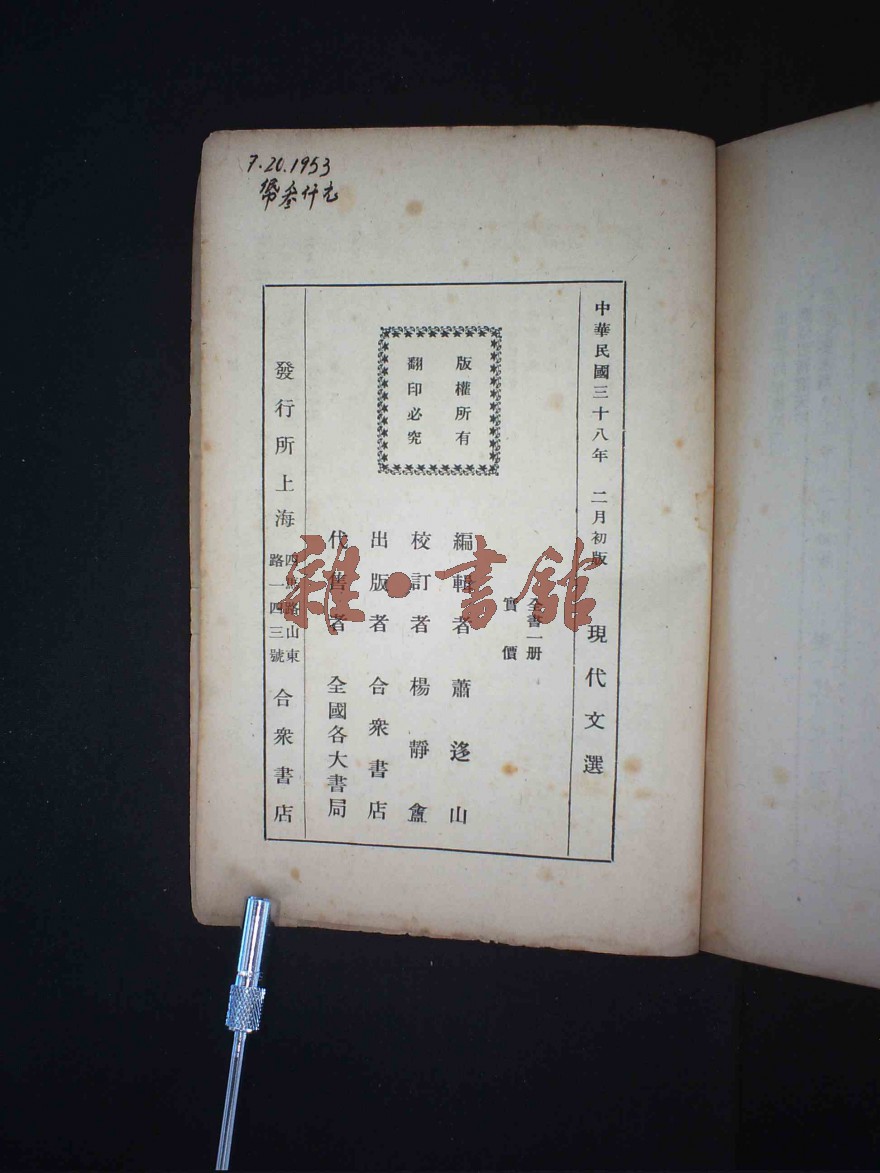 7.20.1953
幣叁仟元
中華民國三十八年 二月初版
現代文選
全書一册
實價
編輯者 蕭迻山
校訂者 楊靜盦
出版者 合衆書店
代售者 全國各大書局
版權所有
翻印必究
發行所上海 四馬路山東路一四三號 合衆書店
雜·書館